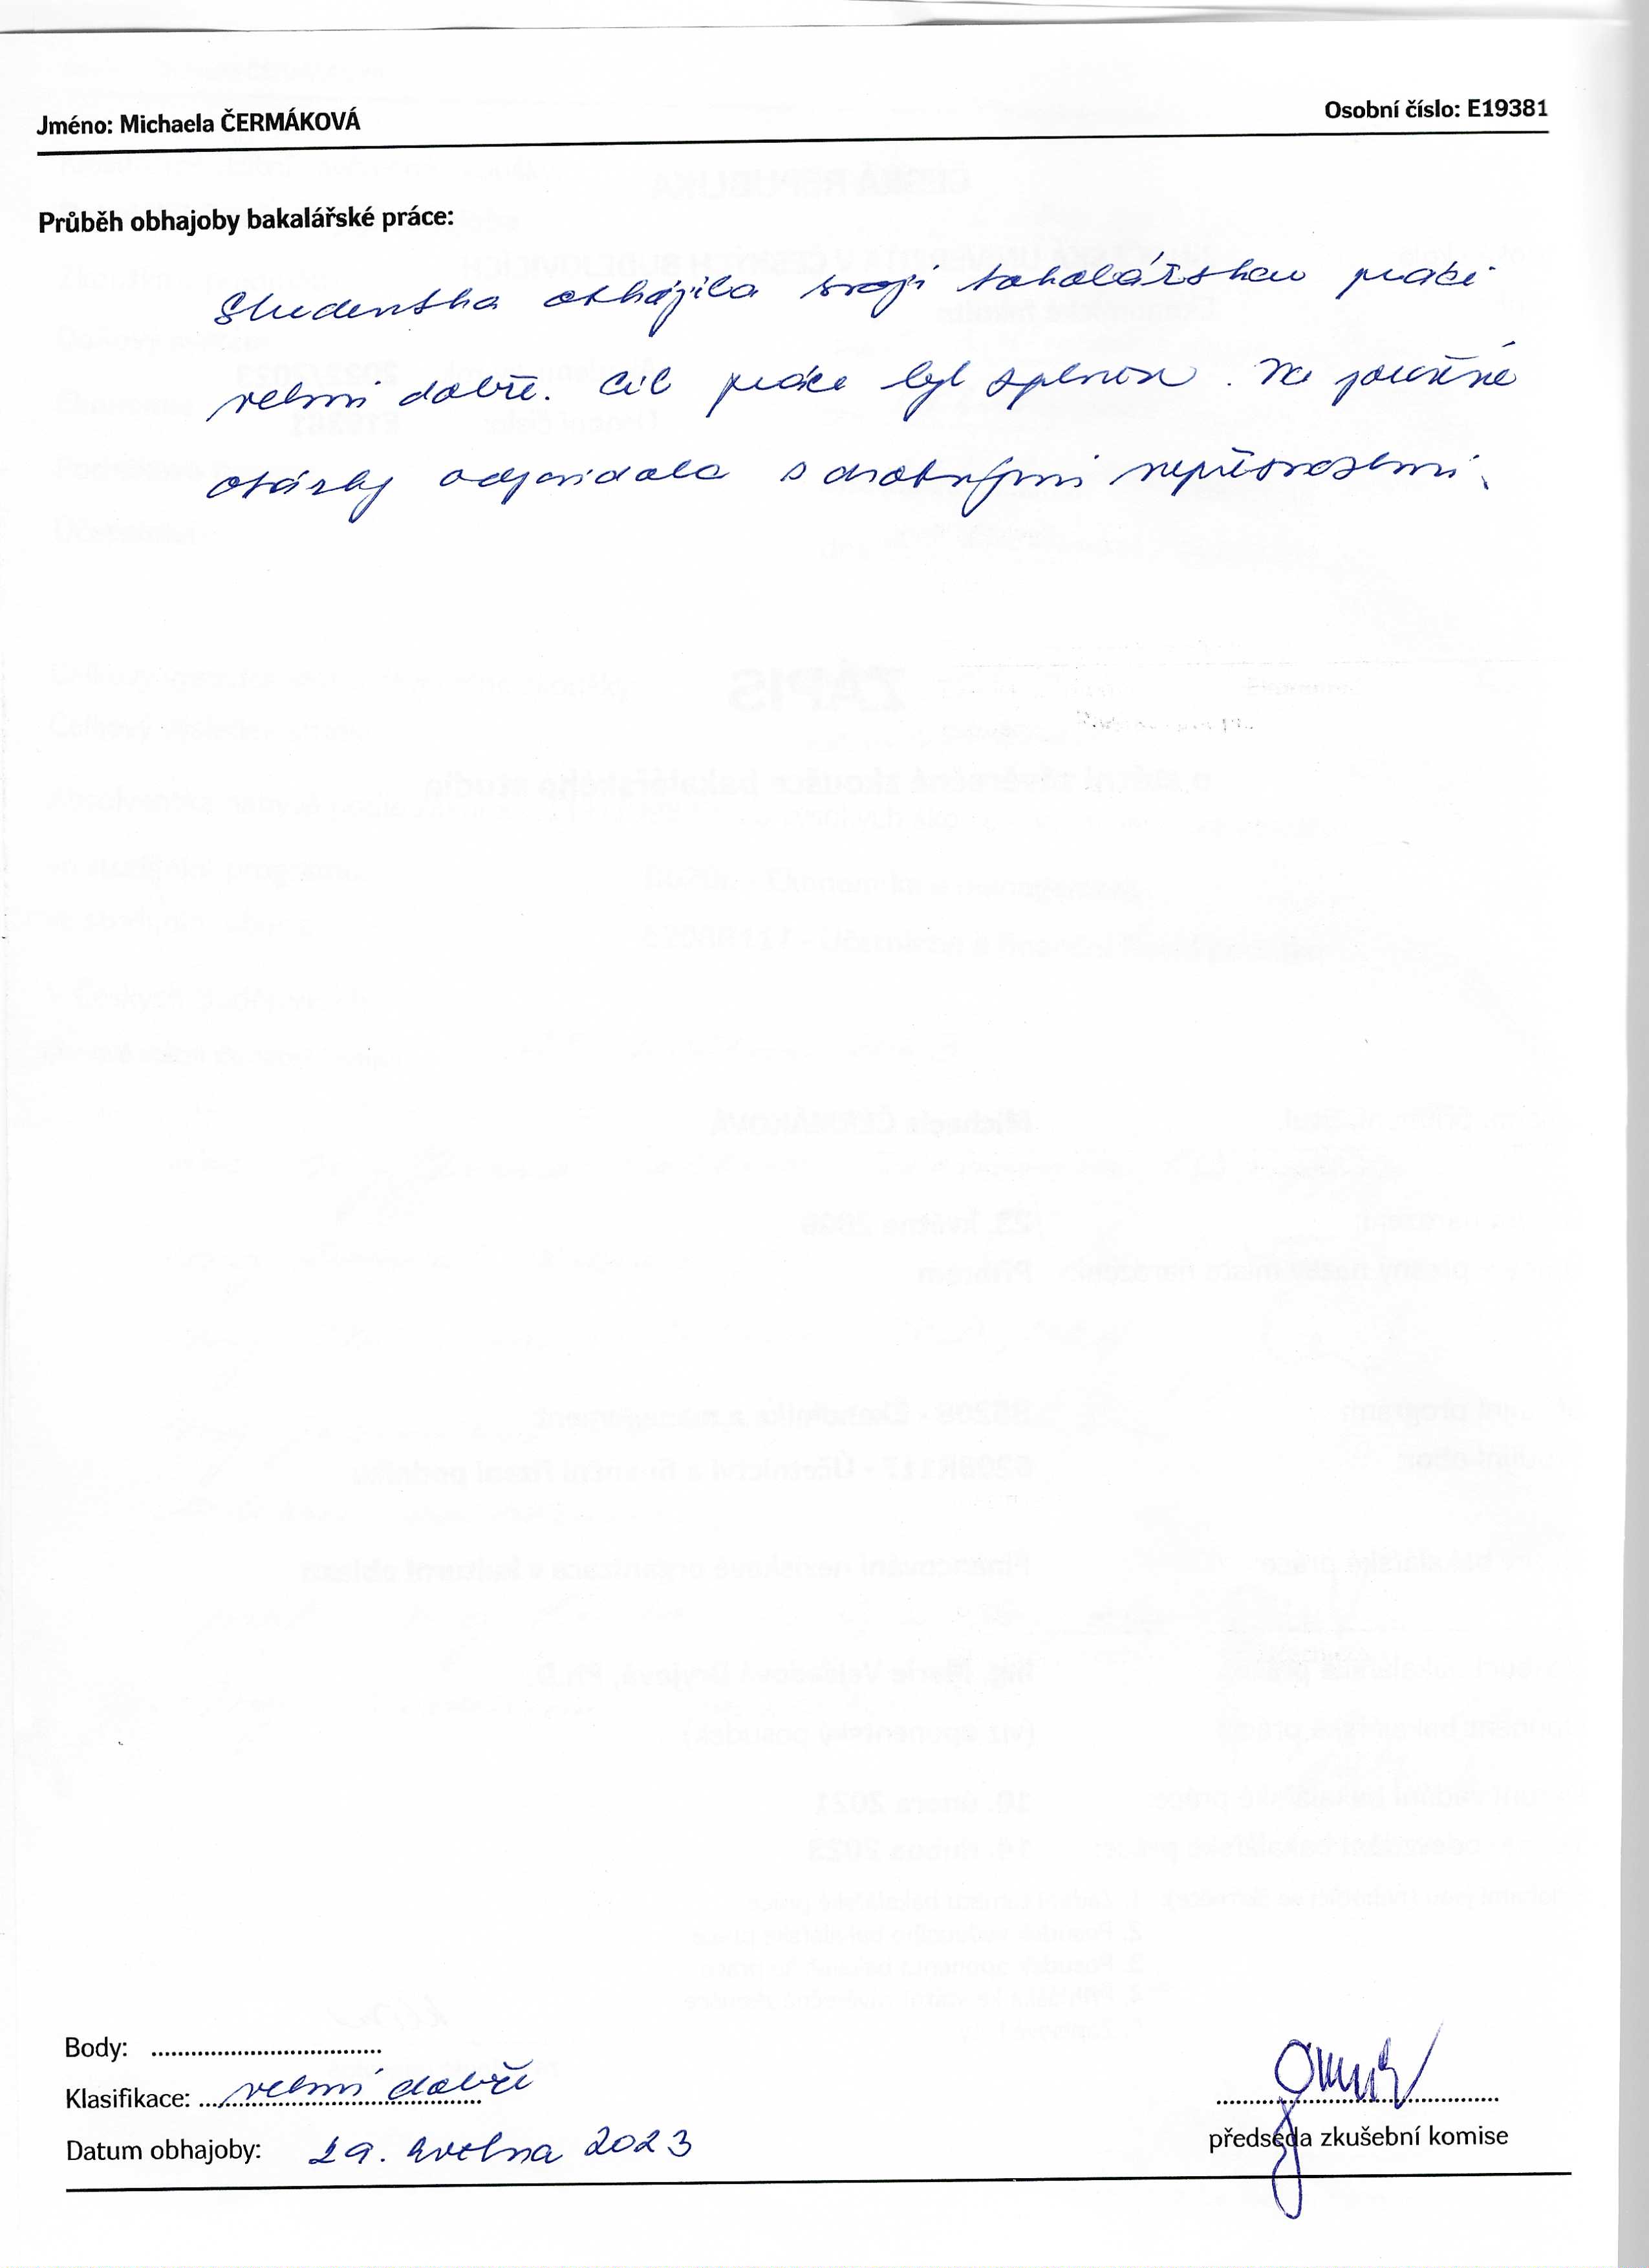 Jméno: Michaela ČERMÁKOVÁ
Osobní číslo: E19381
Průběh obhajoby bakalářské práce:
Studentka obhájila svoji bakalářskou práci
velmi dobře. Cíl práce byl splněn. Na
otázky odpovídala s drobnými nepřesnostmi.
Body: ...................................
Klasifikace: velmi dobře
Datum obhajoby: 29. května 2023
předseda zkušební komise